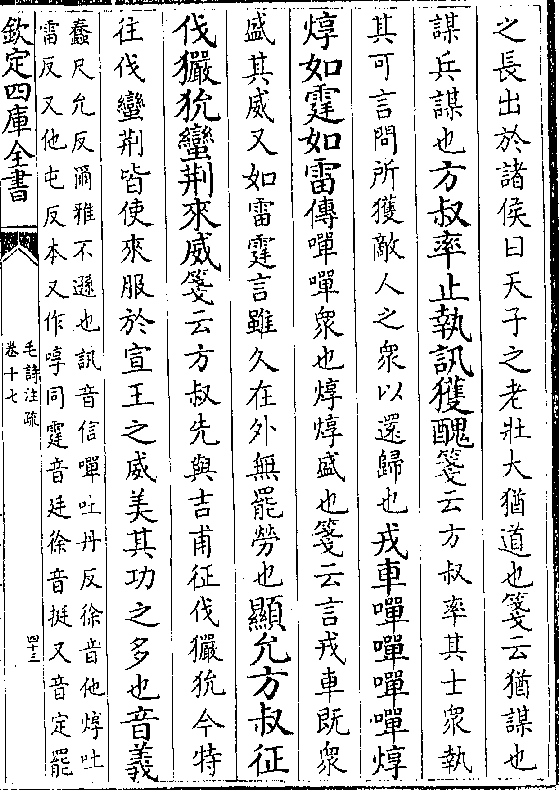 之長出於諸侯曰天子之老壯大猶道也箋云猶謀也
謀兵謀也方叔率止執訊獲醜箋云方叔率其士衆執
其可言問所獲敵人之衆以還歸也戎車嘽嘽嘽嘽焞
焞如霆如雷傳嘽嘽衆也焞焞盛也箋云言戎車既衆
盛其威又如雷霆言雖久在外無罷勞也顯允方叔征
伐玁狁蠻荆來威箋云方叔先與吉甫征伐玁狁今特
往伐蠻荆皆使來服於宣王之威美其功之多也音義
蠢尺允反爾雅不遜也訊音信嘽吐丹反徐音他焞吐
雷反又他屯反本又作啍同霆音廷徐音挺又音定罷
欽定四庫全書
毛詩注疏
卷十七
四十三